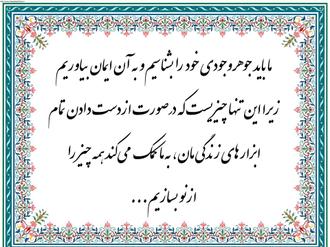 ما باید جوهر وجودی خود را بشناسیم و به آن ایمان بیاوریم
زیرا این تنها چیزیست که در صورت از دست دادن تمام
ابزارهای زندگی مان، به ما کمک می کند همه چیز را
از نو بسازیم...